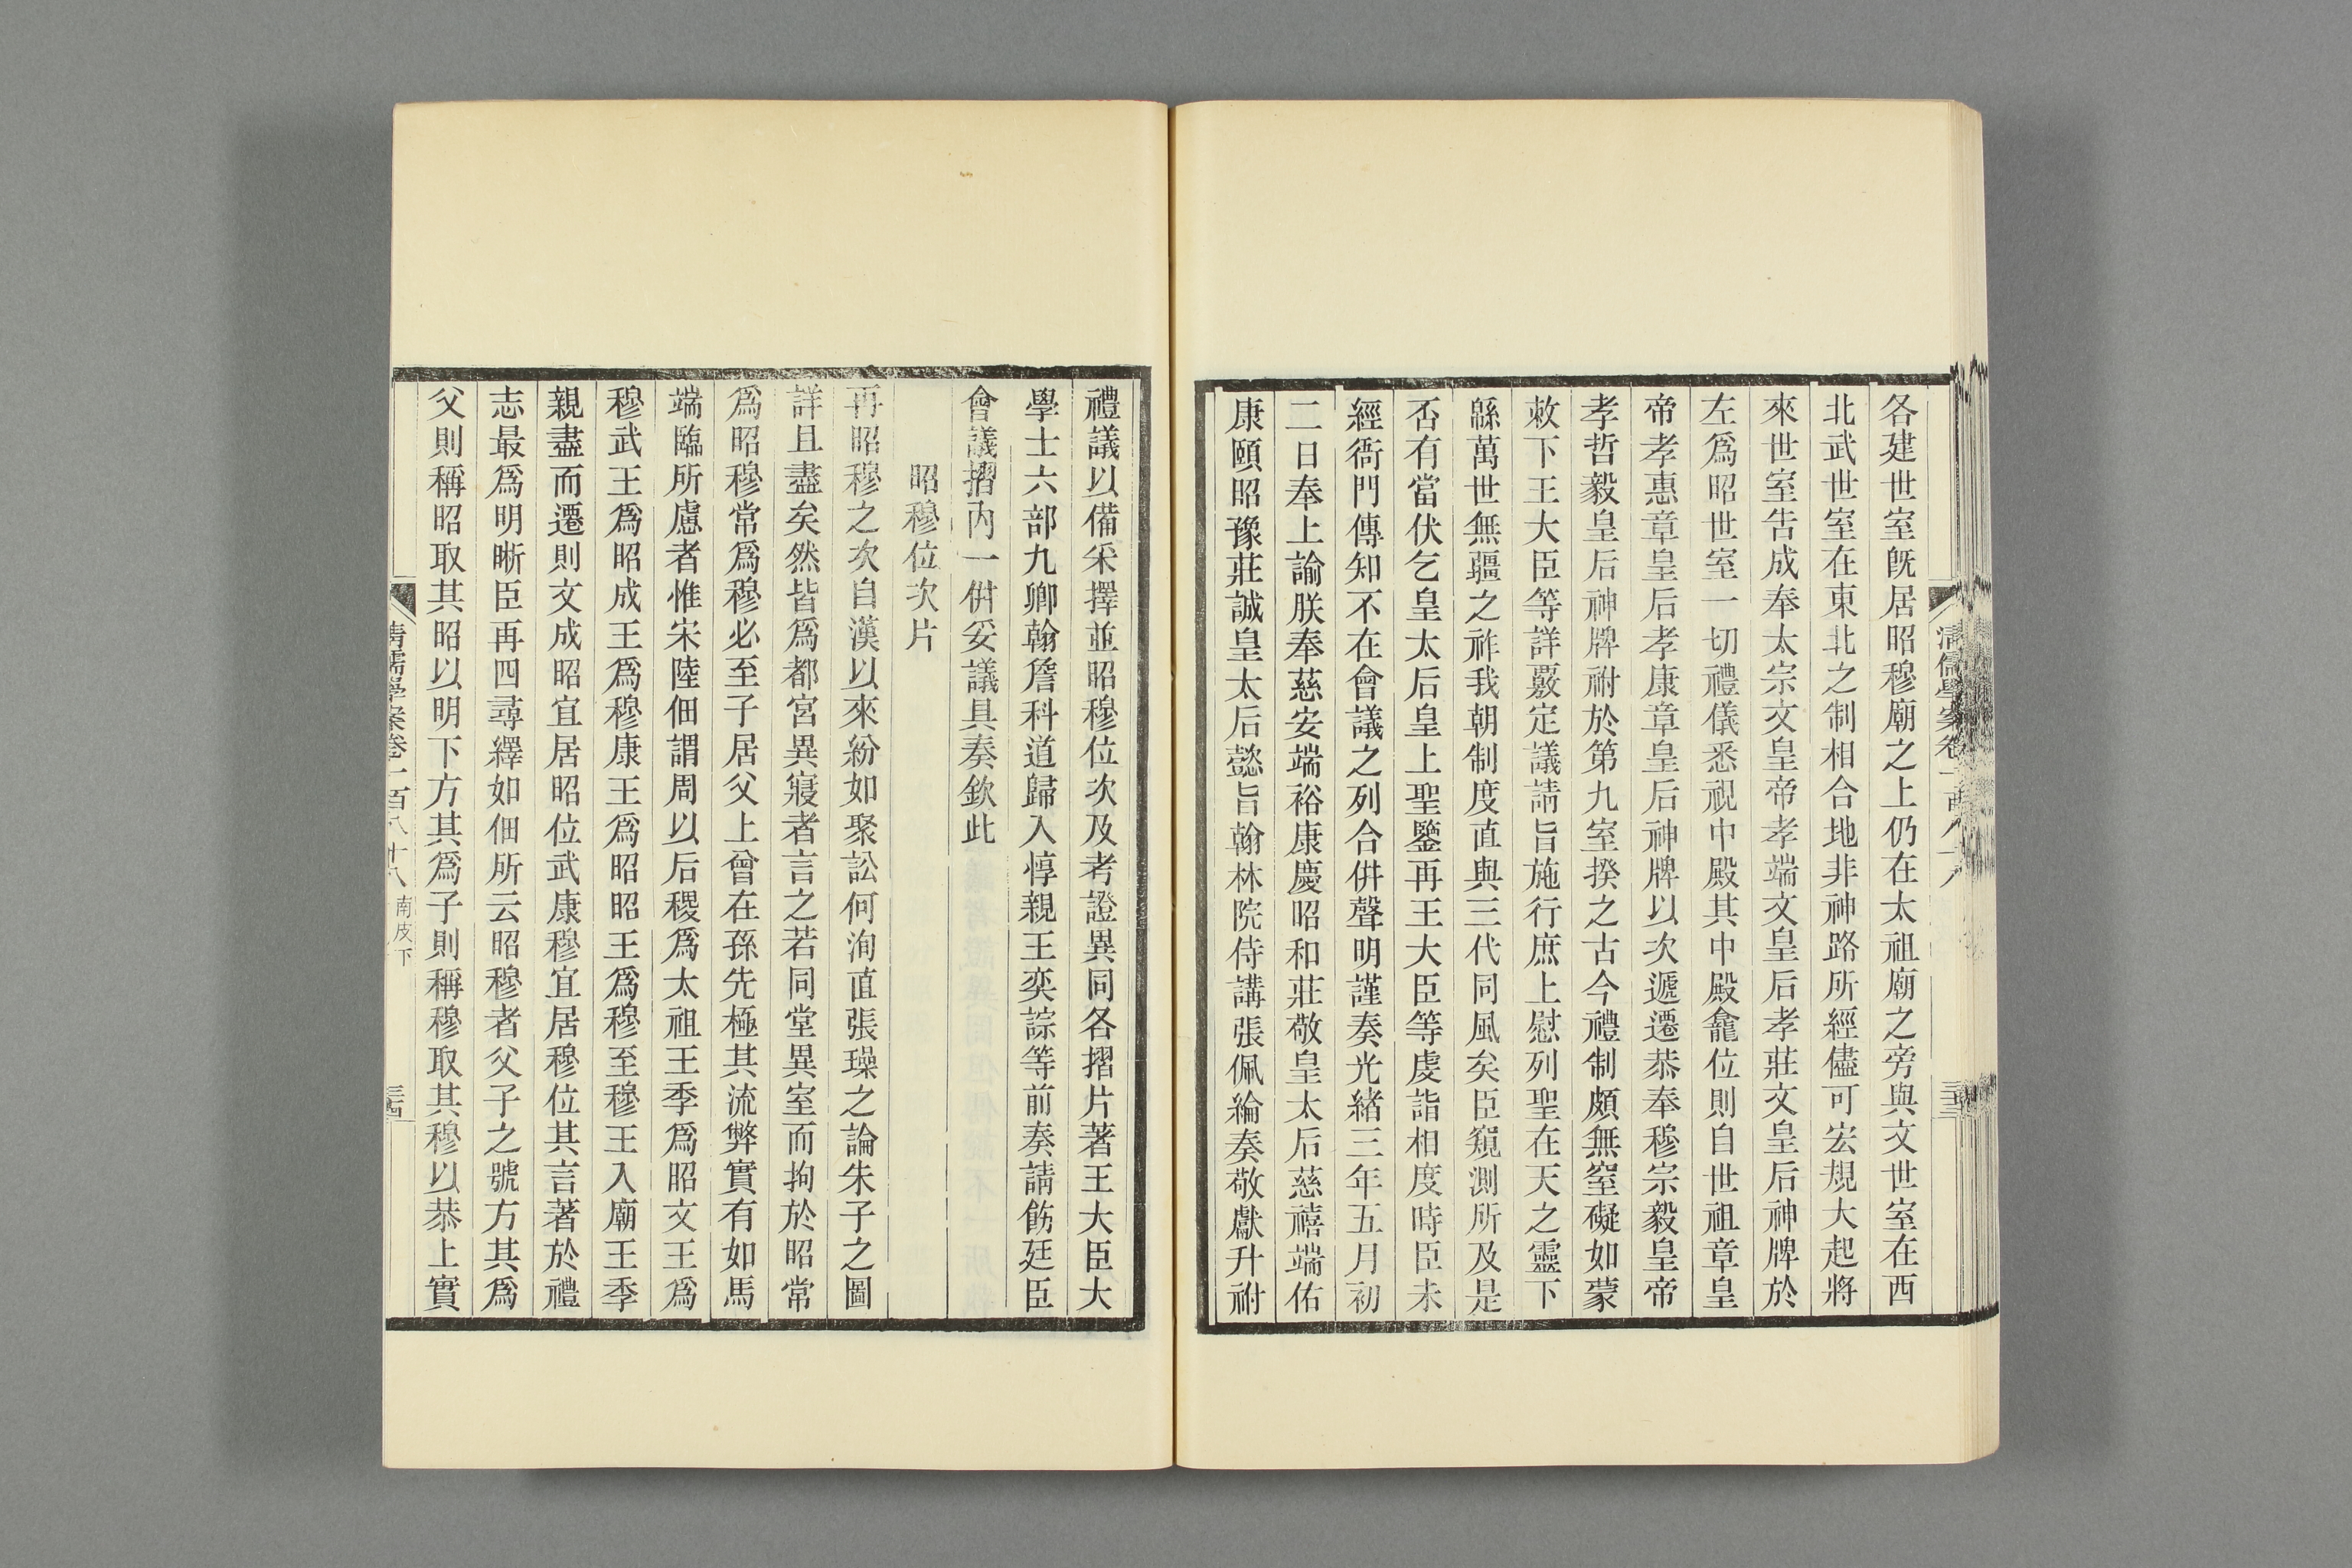 各建世室旣居昭穆廟之上仍在太祖廟之旁與文世室在西
北武世室在東北之制相合地非神路所經儘可宏規大起將
來世室告成奉太宗文皇帝孝端文皇后孝莊文皇后神牌於
左爲昭世室一切禮儀悉視中殿其中殿龕位則自世祖章皇
帝孝惠章皇后孝康章皇后神牌以次遞遷恭奉穆宗毅皇帝
孝哲毅皇后神牌祔於第九室揆之古今禮制頗無窒礙如蒙
敕下王大臣等詳覈定議請旨施行庶上慰列聖在天之靈下
緜萬世無疆之祚我朝制度直與三代同風矣臣窺測所及是
否有當伏乞皇太后皇上聖鑒再王大臣等虔詣相度時臣未
經衙門傳知不在會議之列合併聲明謹奏光緒三年五月初
二日奉上諭朕奉慈安端裕康慶昭和莊敬皇太后慈禧端佑
康頤昭豫莊誠皇太后懿旨翰林院侍講張佩綸奏敬獻升祔
禮議以備采擇並昭穆位次及考證異同各摺片著王大臣大
學士六部九卿翰詹科道歸入惇親王奕誴等前奏請飭廷臣
會議摺內一併妥議具奏欽此
昭穆位次片
再昭穆之次自漢以來紛如聚訟何洵直張璪之論朱子之圖
詳且盡矣然皆爲都宮異寢者言之若同堂異室而拘於昭常
爲昭穆常爲穆必至子居父上曾在孫先極其流弊實有如馬
端臨所慮者惟宋陸佃謂周以后稷爲太祖王季爲昭文王爲
穆武王爲昭成王爲穆康王爲昭昭王爲穆至穆王入廟王季
親盡而遷則文成昭宜居昭位武康穆宜居穆位其言著於禮
志最爲明晰臣再四尋繹如佃所云昭穆者父子之號方其爲
父則稱昭取其昭以明下方其爲子則稱穆取其穆以恭上實
清儒學案卷一百八十八 南皮下 三四